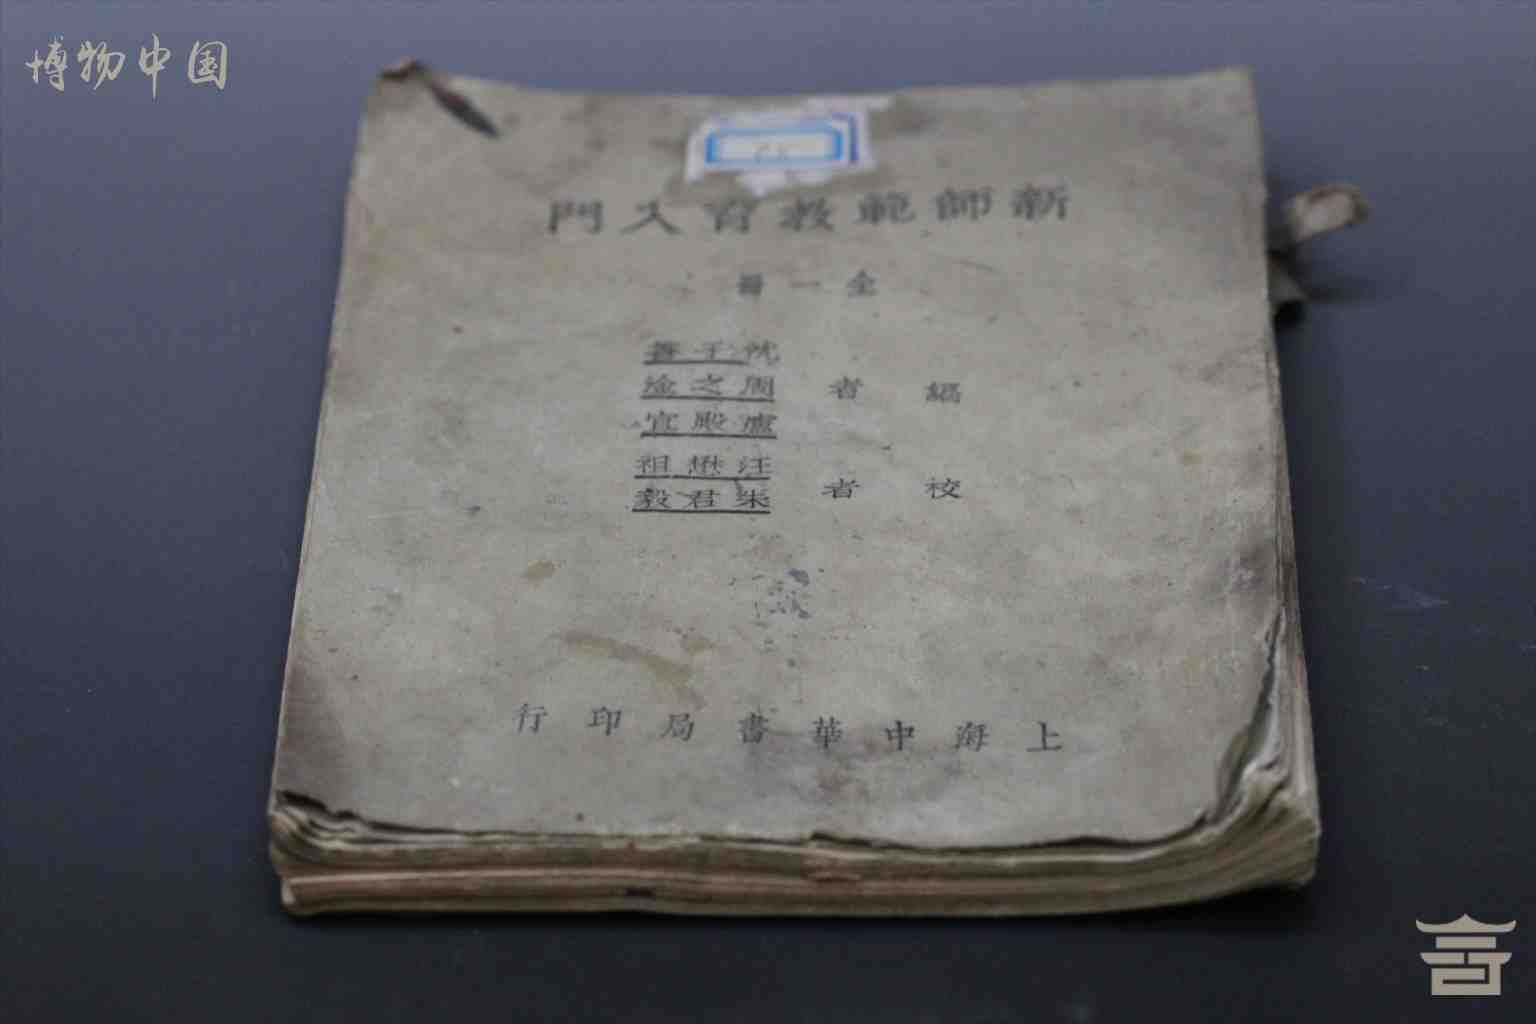 博物中国
新師範教育入門
全一冊
編者
沈子善
周之淦
盧殿宜
校者
汪懋祖
朱君毅
上海中華書局印行